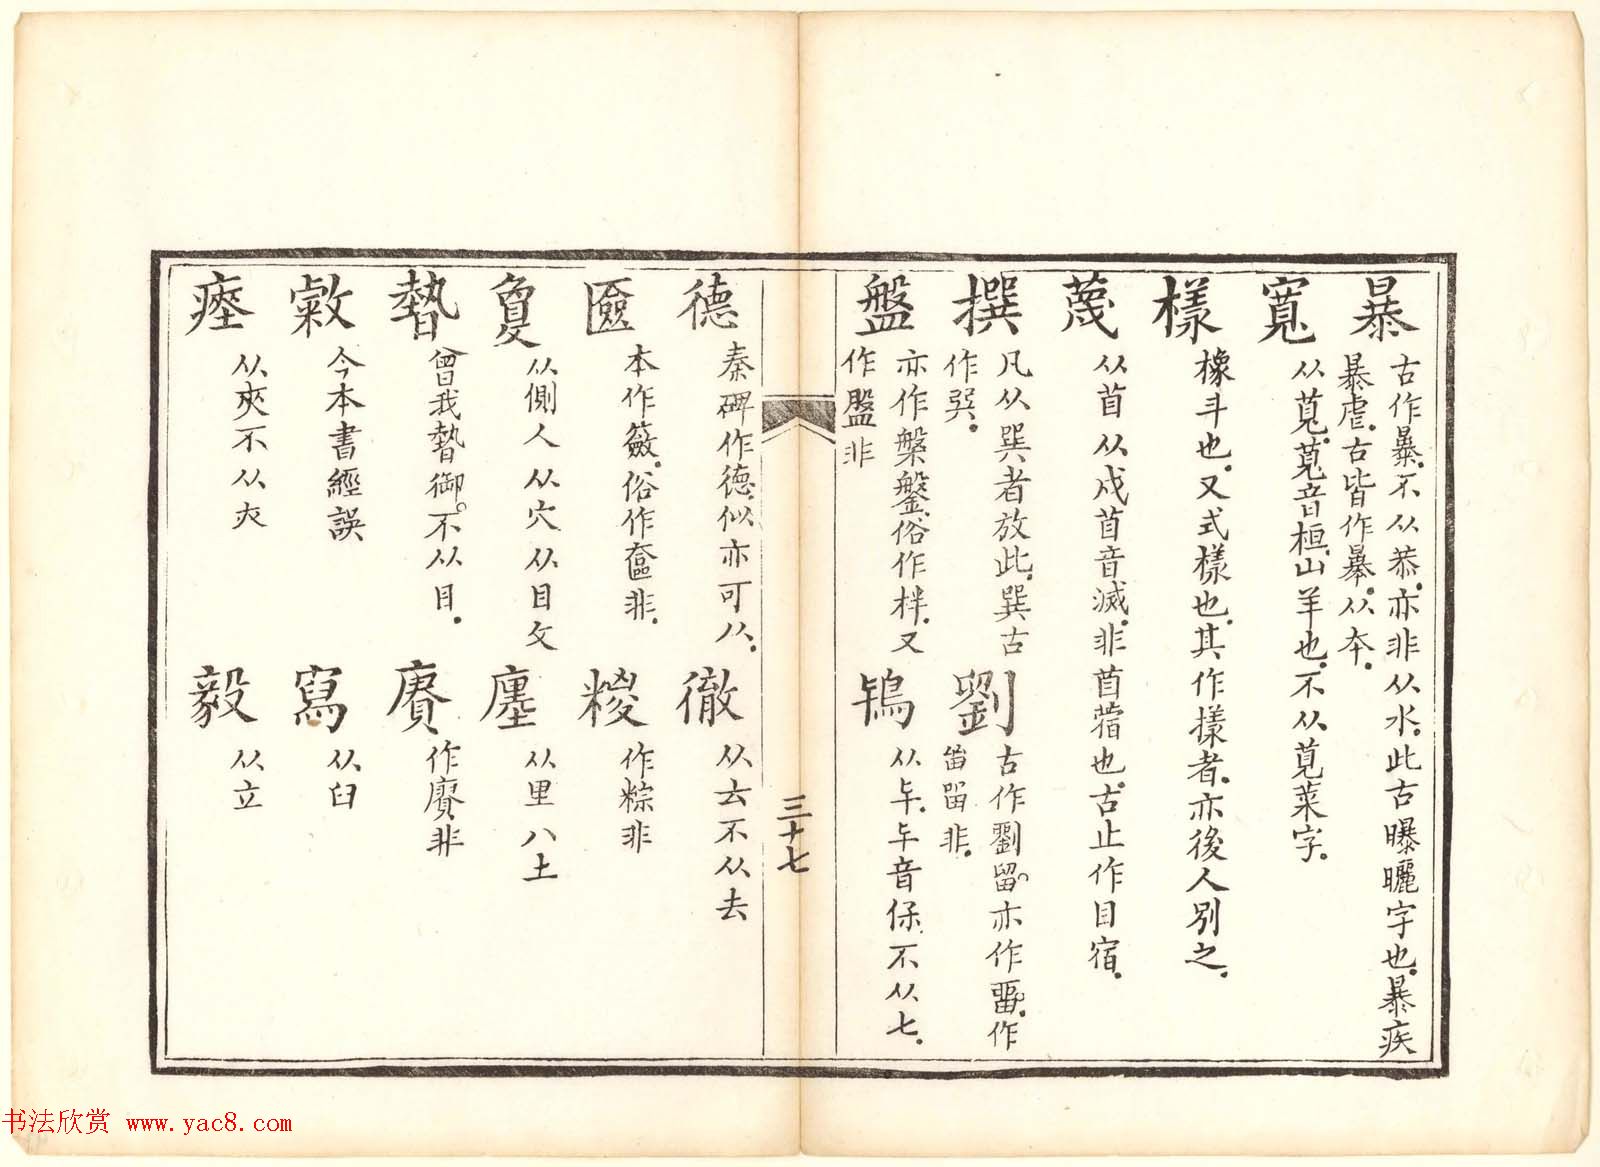 暴 古作暴。不从恭。亦非从水。此古曝曬字也。暴疾
暴虐。古皆作暴。从夲。
寬 从萈。萈音桓。山羊也。不从莧菜字。
樣 橡斗也。又式樣也。其作樣者。亦後人別之。
蔑 从苜从戍苜音滅。非苜蓿也。古止作目宿。
撰 凡从巽者放此。巽古
作巺。
劉 古作劉留。亦作畱。作
畄留非。
盤 亦作槃鎜。俗作柈。又
作盤非
鴇 从㐂。㐂音保。不从七。
三十七
德 秦碑作德。似亦可从。
徹 从云不从去
匳 本作籨。俗作奩非。
糉 作粽非
敻 从側人从穴从目攵
廛 从里八土
暬 曾我暬御。不从目。
賡 作賡非
敹 今本書經誤
寫 从臼
瘞 从㚒不从夾
毅 从立
书法欣赏 www.yac8.com